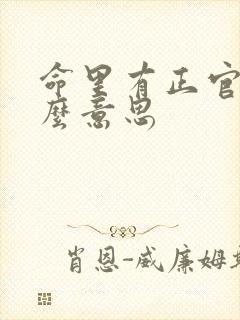 命里有正官
麼意思
肖恩-威廉姆